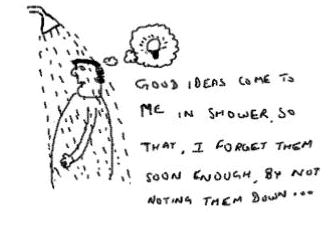 GOOD IDEAS COME TO
ME IN SHOWER, SO
THAT, I FORGET THEM
SOON ENOUGH, BY NOT
NOTING THEM DOWN...